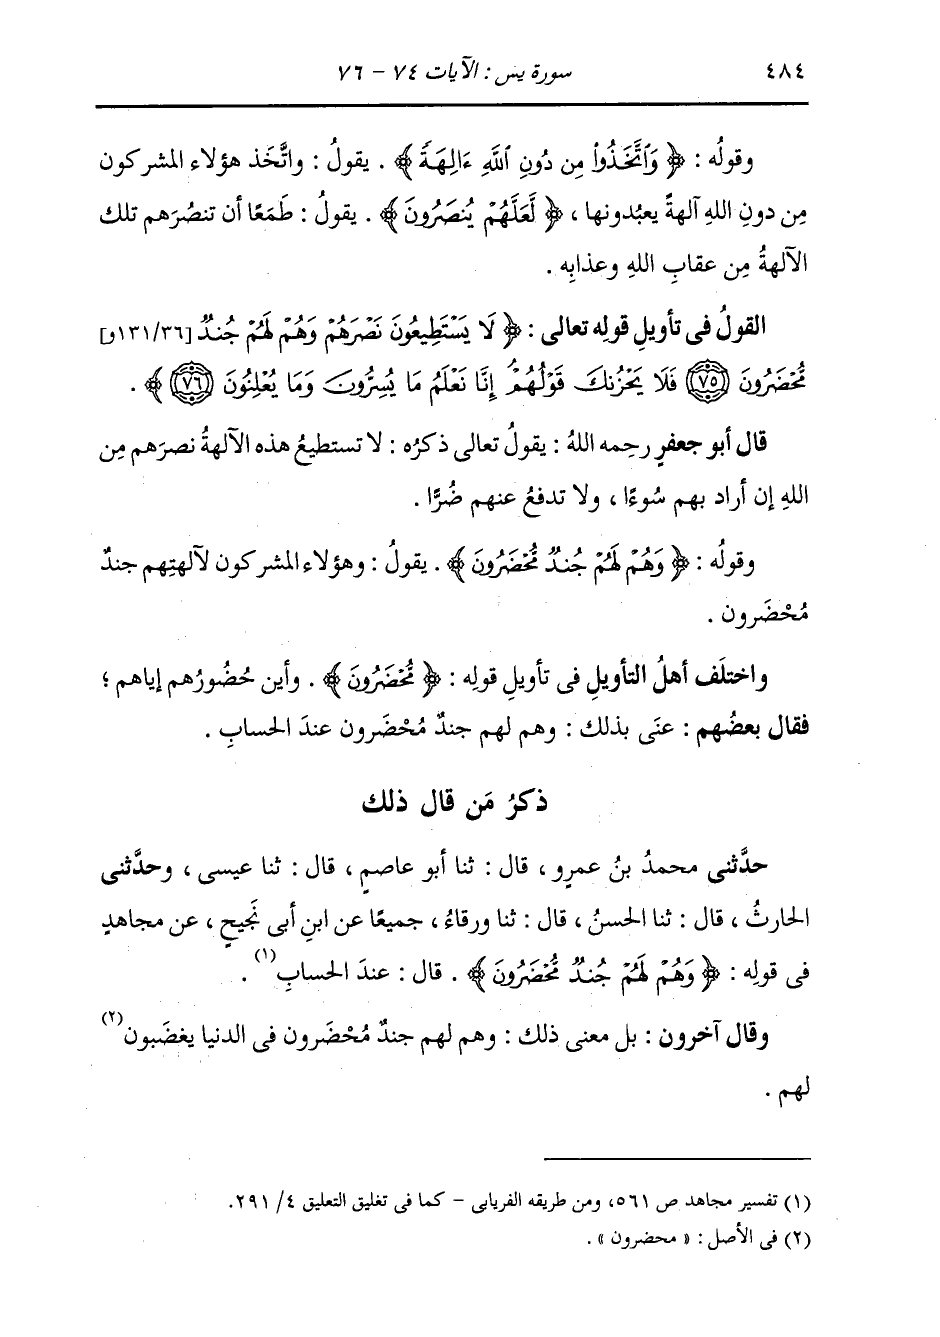 ٤٨٤ سورة يس : الآيات ٧٤ - ٧٦
وقولُه : ﴿ وَٱتَّخَذُواْ مِن دُونِ ٱللَّهِ ءَالِهَةً ﴾ . يقولُ : واتَّخَذ هؤلاء المشركون
مِن دونِ اللهِ آلهةً يعبُدونها ، ﴿ لَّعَلَّهُمْ يُنصَرُونَ ﴾ . يقولُ : طَمَعًا أن تنصُرَهم تلك
الآلهةُ مِن عقابِ اللهِ وعذابِه .
القولُ فى تأويلِ قولِه تعالى : ﴿ لَا يَسْتَطِيعُونَ نَصْرَهُمْ وَهُمْ لَهُمْ جُندٌ [١٣١/٣٦و]
مُّحْضَرُونَ (٧٥) فَلَا يَحْزُنكَ قَوْلُهُمْ إِنَّا نَعْلَمُ مَا يُسِرُّونَ وَمَا يُعْلِنُونَ (٧٦) ﴾ .
قال أبو جعفرٍ رحِمه اللهُ : يقولُ تعالى ذكرُه : لا تستطيعُ هذه الآلهةُ نصرَهم مِن
اللهِ إن أراد بهم سُوءًا ، ولا تدفعُ عنهم ضُرًّا .
وقولُه : ﴿ وَهُمْ لَهُمْ جُندٌ مُّحْضَرُونَ ﴾ . يقولُ : وهؤلاء المشركون لآلهتِهم جندٌ
مُحْضَرون .
واختلَف أهلُ التأويلِ فى تأويلِ قولِه : ﴿ مُّحْضَرُونَ ﴾ . وأين حُضُورُهم إياهم ؛
فقال بعضُهم : عنَى بذلك : وهم لهم جندٌ مُحْضَرون عندَ الحسابِ .
ذكرُ مَن قال ذلك
حدَّثنى محمدُ بنُ عمرٍو ، قال : ثنا أبو عاصمٍ ، قال : ثنا عيسى ، وحدَّثنى
الحارثُ ، قال : ثنا الحسنُ ، قال : ثنا ورقاءُ ، جميعًا عن ابنِ أبى نَجيحٍ ، عن مجاهدٍ
فى قولِه : ﴿ وَهُمْ لَهُمْ جُندٌ مُّحْضَرُونَ ﴾ . قال : عندَ الحسابِ(١) .
وقال آخرون : بل معنى ذلك : وهم لهم جندٌ مُحْضَرون فى الدنيا يغضَبون(٢)
لهم .
(١) تفسير مجاهد ص ٥٦١، ومن طريقه الفريابى - كما فى تغليق التعليق ٤/ ٢٩١.
(٢) فى الأصل : « محضرون » .